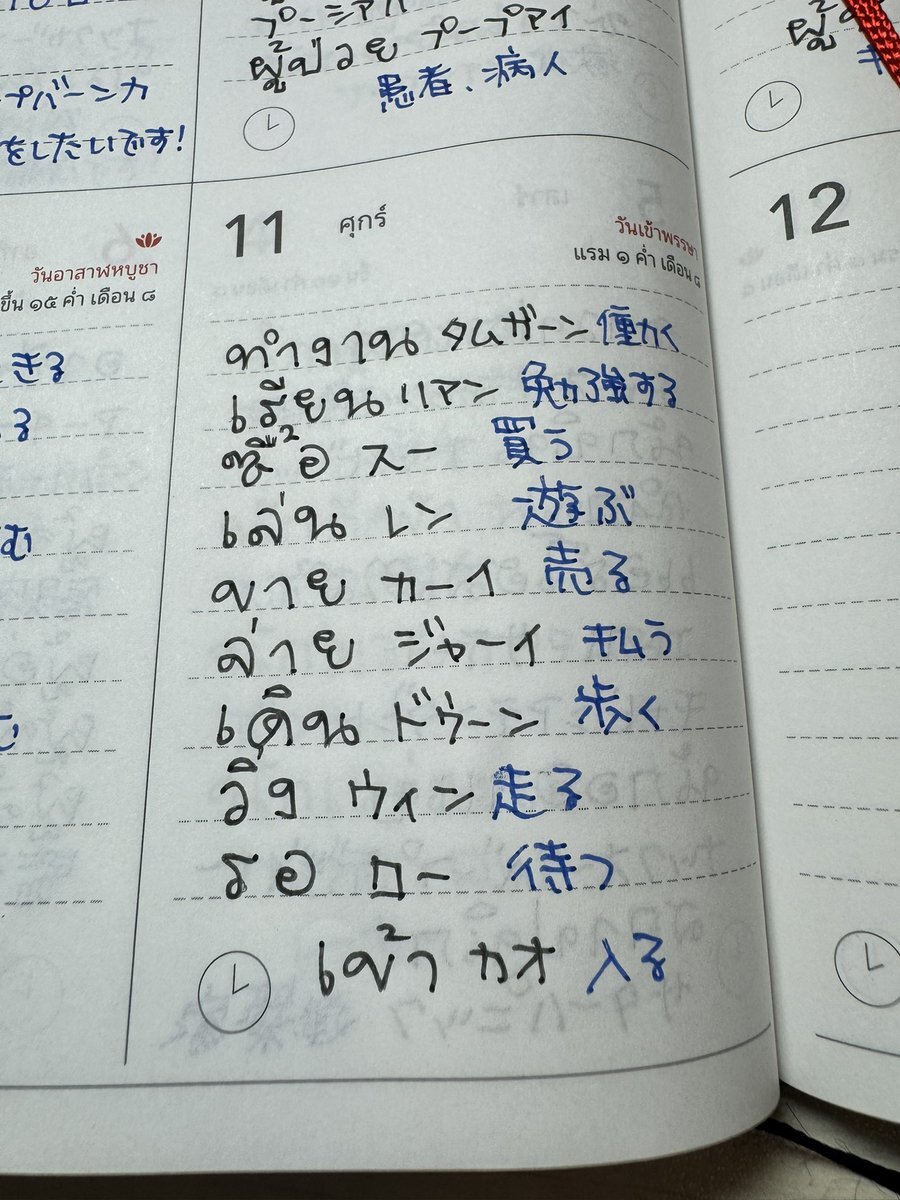 プーミアハ
ผู้ป่วย プープアイ
患者、病人
プバーンカ
をしたいです!
11 ศุกร์
วันเข้าพรรษา
แรม ๑ ค่ำ เดือน ๘
12
วันอาสาฬหบูชา
ขึ้น ๑๕ ค่ำ เดือน ๘
ทำงาน タムガーン 働く
เรียน リアン 勉強する
ซื้อ スー 買う
เล่น レン 遊ぶ
ขาย カーイ 売る
จ่าย ジャーイ キムう
เดิน ドゥーン 歩く
วิ่ง ウィン 走る
รอ ロー 待つ
เข้า カオ 入る
きる
る
む